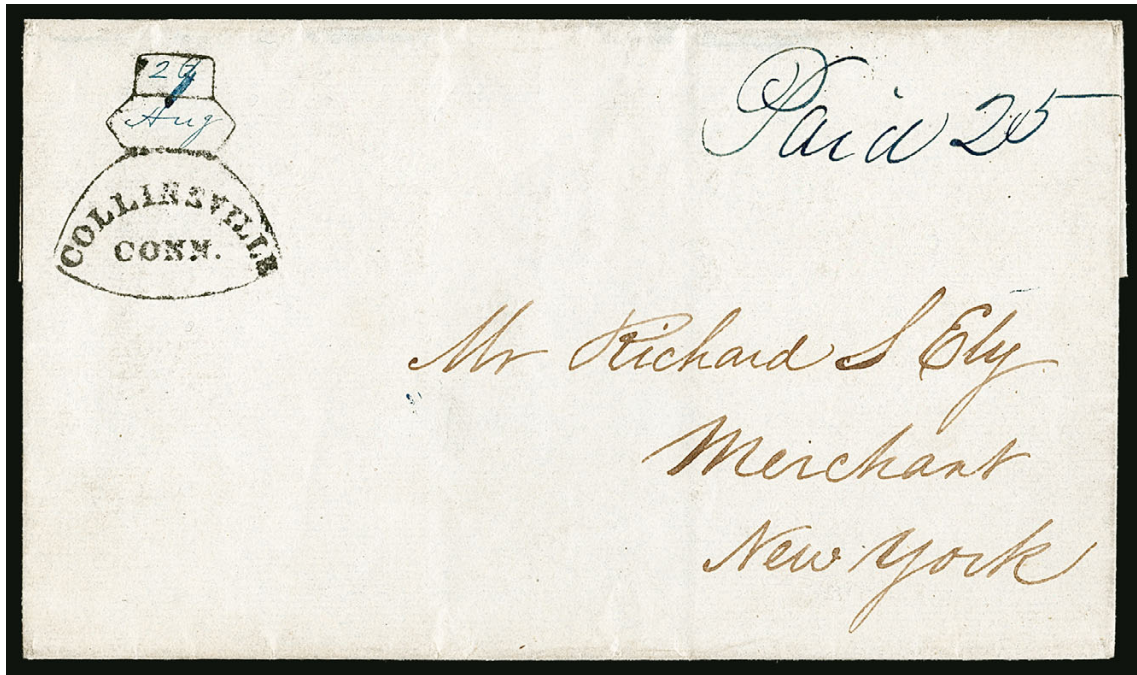 Aug
COLLINSVILLE
CONN.
Paid 25
Mr Richard S Ely
Merchant
New York